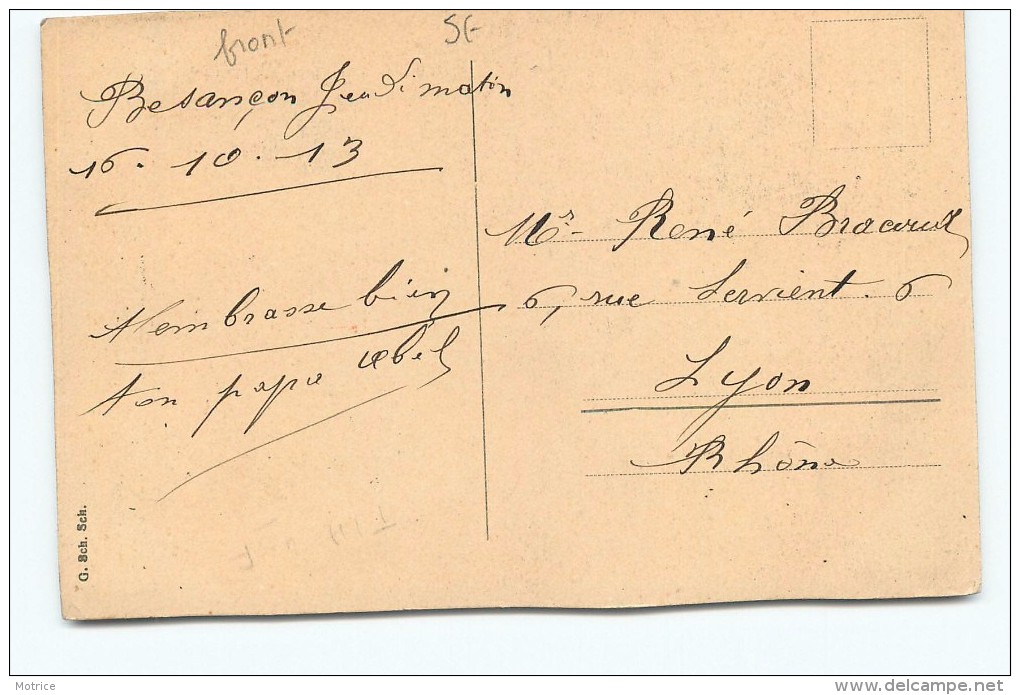 front
5€
Besançon Jeudi matin
16. 10. 13
t'embrasse bien
ton papa Abel
Mr René
6, rue Servient. 6
Lyon
Rhône
G. Sch. Sch.
Motrice
delcampe.net